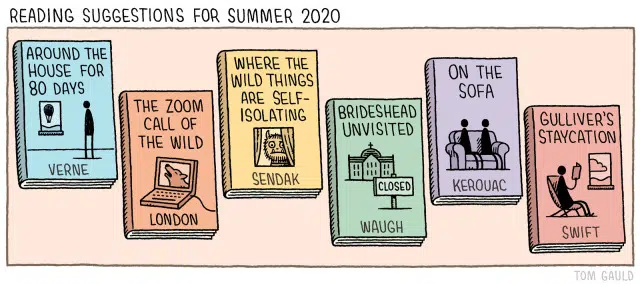 READING SUGGESTIONS FOR SUMMER 2020
AROUND THE
HOUSE FOR
80 DAYS
VERNE
THE ZOOM
CALL OF
THE WILD
LONDON
WHERE THE
WILD THINGS
ARE SELF-
ISOLATING
SENDAK
BRIDESHEAD
UNVISITED
CLOSED
WAUGH
ON THE
SOFA
KEROUAC
GULLIVER'S
STAYCATION
SWIFT
TOM GAULD